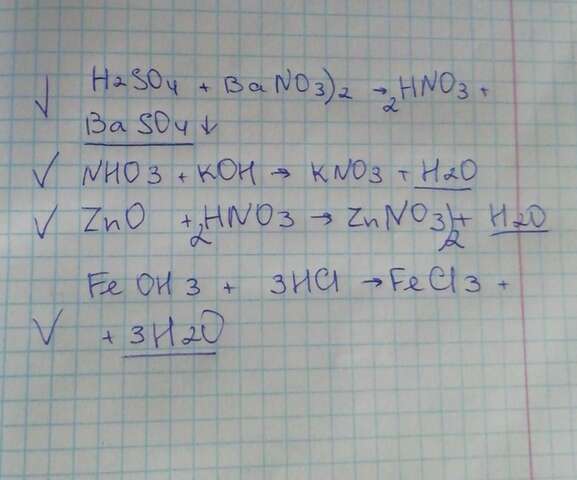 H2SO4 + BaNO3)2 → 2HNO3 +
BaSO4↓
NHO3 + KOH → KNO3 + H2O
ZnO + 2HNO3 → ZnNO3)2 + H2O
FeOH3 + 3HCl → FeCl3 +
+ 3H2O